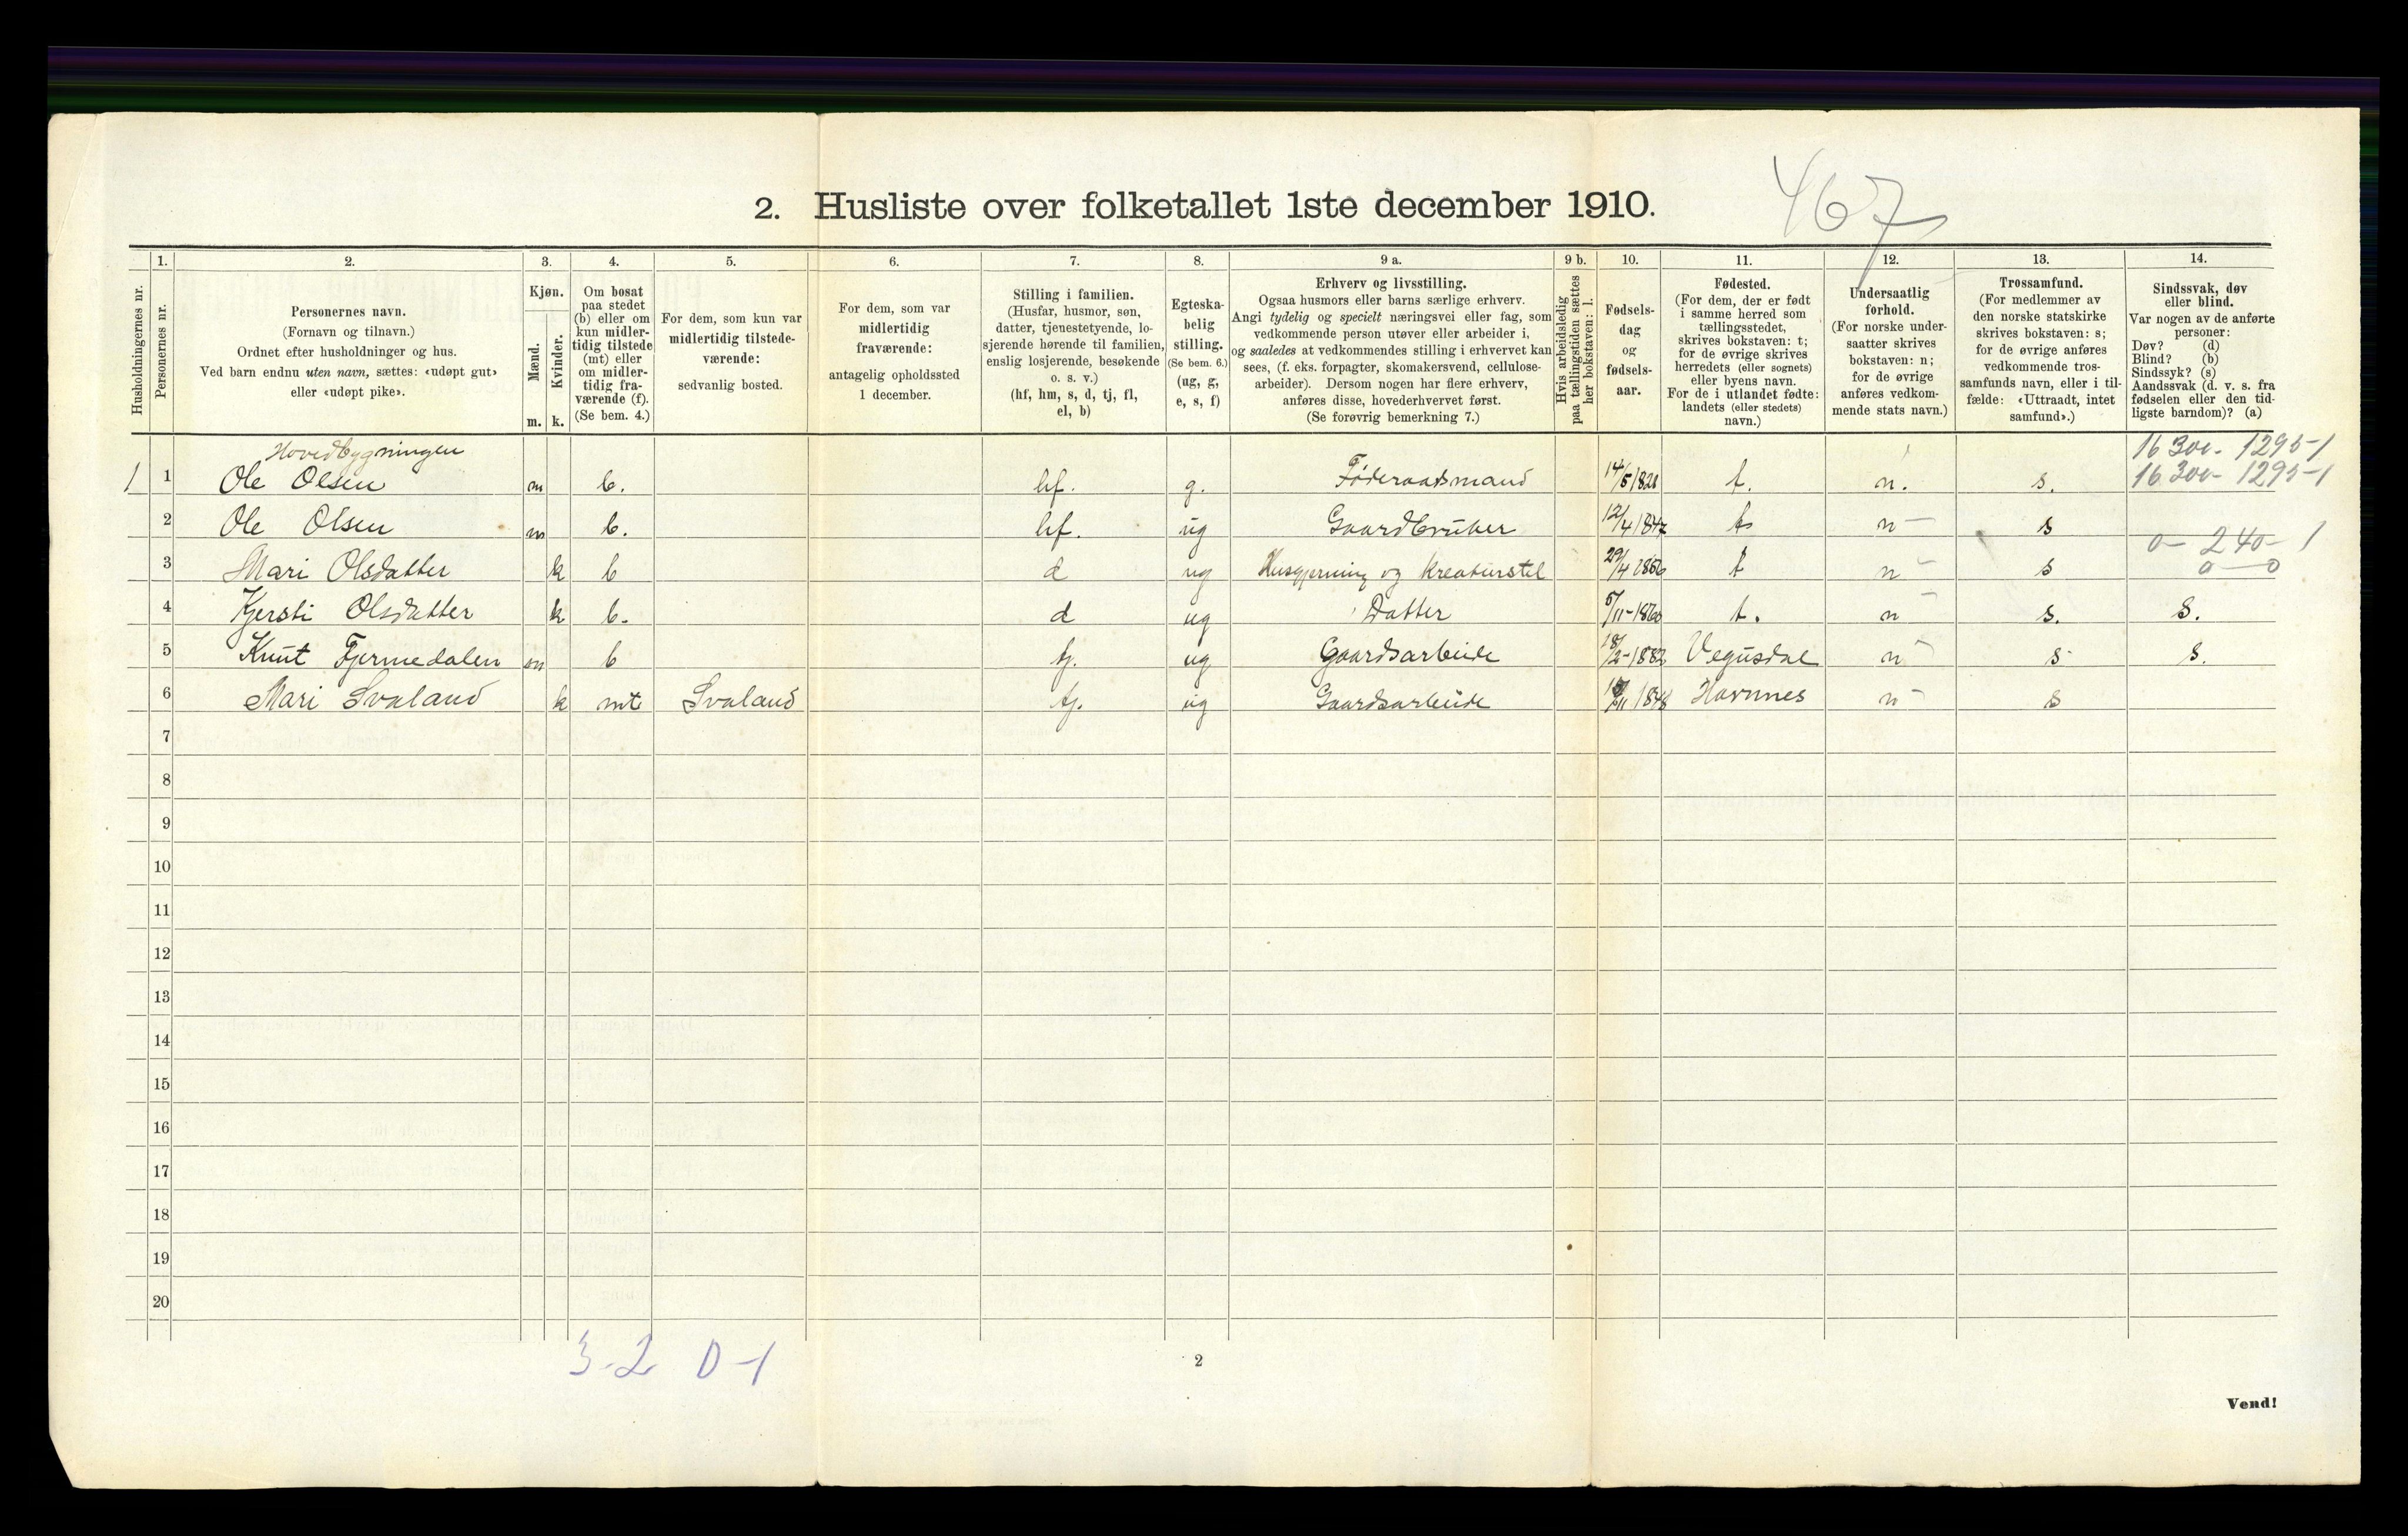 467
2. Husliste over folketallet 1ste december 1910.
Husholdningernes nr.
1.
Personernes nr.
2.
Personernes navn.
(Fornavn og tilnavn.)
Ordnet efter husholdninger og hus.
Ved barn endnu uten navn, sættes: «udøpt gut»
eller «udøpt pike».
3.
Kjøn.
Mænd.
Kvinder.
m. k.
4.
Om bosat
paa stedet
(b) eller om
kun midler-
tidig tilstede
(mt) eller
om midler-
tidig fra-
værende (f).
(Se bem. 4.)
5.
For dem, som kun var
midlertidig tilstede-
værende:
sedvanlig bosted.
6.
For dem, som var
midlertidig
fraværende:
antagelig opholdssted
1 december.
7.
Stilling i familien.
(Husfar, husmor, søn,
datter, tjenestetyende, lo-
sjerende hørende til familien,
enslig losjerende, besøkende
o. s. v.)
(hf, hm, s, d, tj, fl,
el, b)
8.
Egteska-
belig
stilling.
(Se bem. 6.)
(ug, g,
e, s, f)
9 a.
Erhverv og livsstilling.
Ogsaa husmors eller barns særlige erhverv.
Angi tydelig og specielt næringsvei eller fag, som
vedkommende person utøver eller arbeider i,
og saaledes at vedkommendes stilling i erhvervet kan
sees, (f. eks. forpagter, skomakersvend, cellulose-
arbeider). Dersom nogen har flere erhverv,
anføres disse, hovederhvervet først.
(Se forøvrig bemerkning 7.)
9 b.
Hvis arbeidsledig
paa tællingstiden sættes
her bokstaven: l.
10.
Fødsels-
dag
og
fødsels-
aar.
11.
Fødested.
(For dem, der er født
i samme herred som
tællingsstedet,
skrives bokstaven: t;
for de øvrige skrives
herredets (eller sognets)
eller byens navn.
For de i utlandet fødte:
landets (eller stedets)
navn.)
12.
Undersaatlig
forhold.
(For norske under-
saatter skrives
bokstaven: n;
for de øvrige
anføres vedkom-
mende stats navn.)
13.
Trossamfund.
(For medlemmer av
den norske statskirke
skrives bokstaven: s;
for de øvrige anføres
vedkommende tros-
samfunds navn, eller i til-
fælde: «Uttraadt, intet
samfund».)
14.
Sindssvak, døv
eller blind.
Var nogen av de anførte
personer:
Døv? (d)
Blind? (b)
Sindssyk? (s)
Aandssvak (d. v. s. fra
fødselen eller den tid-
ligste barndom)? (a)
Hovedbygningen 16300- 1295-1
1 1 Ole Olsen m b. hf. g. Føderaadsmand t. n. s. 16300- 1295-1
2 Ole Olsen m b. hf. ug Gaardbruker 12/4 1847 t n s
0- 240- 1
3 Mari Olsdatter k b d ug Husgjerning og kreaturstel 29/4 1856 t n s 0-0
4 Kjersti Olsdatter k b. d ug Datter 5/11-1860 t. n s. s.
5 Knut Fjermedalen m b tj. ug Gaardsarbeide 18/2-1882 Vegusdal n s s.
6 Mari Svaland k mt Svaland tj. ug Gaardsarbeide Havnnes n s
7
8
9
10
11
12
13
14
15
16
17
18
19
20
3-2 0-1
2
Vend!